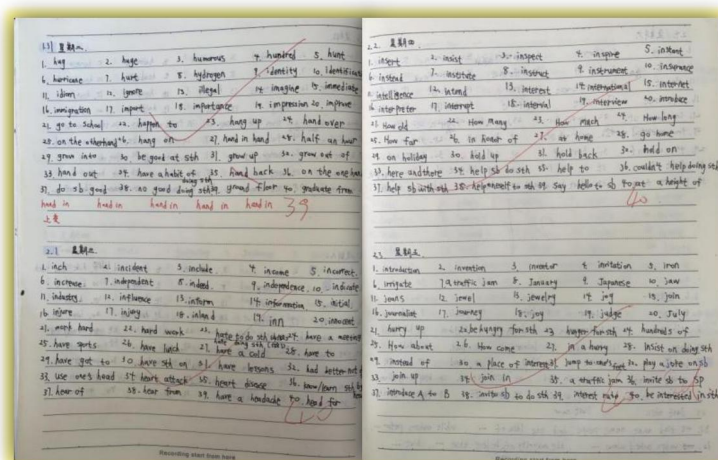 1.31 星期二
1. hug 2. huge 3. humorous 4. hundred 5. hunt
6. hurricane 7. hurt 8. hydrogen 9. identity 10. identification
11. idiom 12. ignore 13. illegal 14. imagine 15. immediate
16. immigration 17. import 18. importance 19. impression 20. improve
21. go to school 22. happen to 23. hang up 24. hand over
25. on the otherhand 26. hang on 27. hand in hand 28. half an hour
29. grow into 30. be good at sth 31. grow up 32. grow out of
33. hand out 34. have a habit of doing sth 35. hand back 36. on the one hand
37. do sb good 38. no good doing sth 39. ground floor 40. graduate from
hand in hand in hand in hand in hand in 39
2.1 星期三
1. inch 2. incident 3. include 4. income 5. incorrect
6. increase 7. independent 8. indeed 9. independence 10. indicate
11. industry 12. influence 13. inform 14. information 15. initial
16. injure 17. injury 18. inland 19. inn 20. innocent
21. work hard 22. hard work 23. hate to do sth 24. have a
25. have sports 26. have lunch 27. have a cold 28. have to
29. have got to 30. have sth on 31. have lessons 32. had better not
33. use one's head 34. heart attack 35. heart disease 36. know/learn sth by
37. hear of 38. hear from 39. have a headache 40. head for
40
Recording start from here
2.2 星期四
1. insert 2. insist 3. inspect 4. inspire 5. instant
6. instead 7. institute 8. instruct 9. instrument 10. insurance
11. intelligence 12. intend 13. interest 14. international 15. internet
16. interpreter 17. interrupt 18. interval 19. interview 20. introduce
21. How old 22. How many 23. How much 24. How long
25. How far 26. in honor of 27. at home 28. go home
29. on holiday 30. hold up 31. hold back 32. hold on
33. here and there 34. help sb do sth 35. help to 36. couldn't help doing sth
37. help sb with sth 38. help oneself to sth 39. say hello to sb 40. at a height of
40
2.3 星期五
1. introduction 2. invention 3. inventor 4. invitation 5. iron
6. irrigate 7. a traffic jam 8. January 9. Japanese 10. jaw
11. jeans 12. jewel 13. jewelry 14. jog 15. join
16. journalist 17. journey 18. joy 19. judge 20. July
21. hurry up 22. be hungry for sth 23. hunger for sth 24. hundreds of
25. How about 26. How come 27. in a hurry 28. insist on doing sth
29. instead of 30. a place of interest 31. jump to one's feet 32. play a joke on sb
33. join up 34. join in 35. a traffic jam 36. invite sb to sp
37. introduce A to B 38. invite sb to do sth 39. interest rate 40. be interested in sth
40
Recording start from here